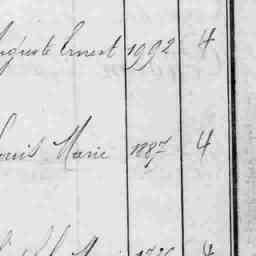 Auguste Ernest 1992 4
Louis Marie 1887 4
4